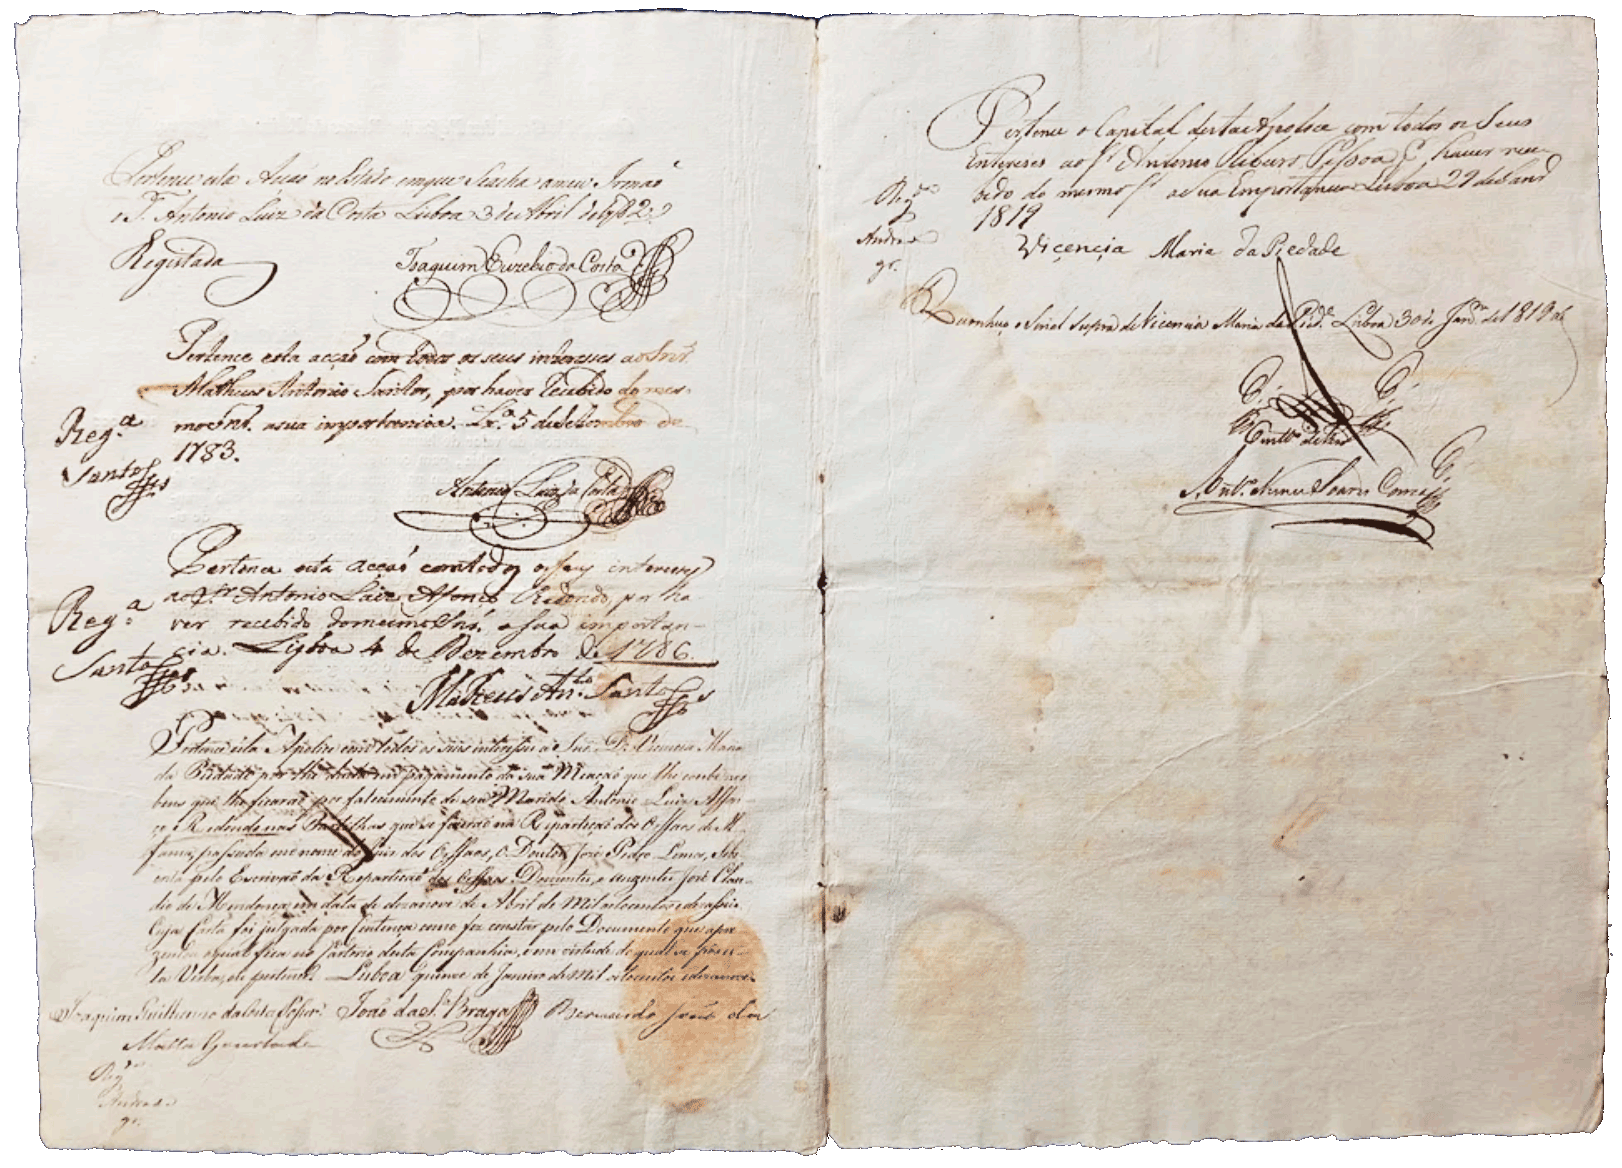 Pertence esta Acção no Estado em que Seacha a meu Irmaõ
o S.r Antonio Luiz da Costa Lisboa 3 de Abril de 1782
Registada
Joaquim Euzebio da Costa
Pertence esta acçaõ com todos os seus interesses ao Snr.
Matheus Antonio Santos, por haver recebido do mes-
mo Snr. a sua importancia. Lx.ª 5 de Setembro de
1783.
Reg.ª
Santos
Antonio Luiz da Costa
Pertence esta acçaõ com todos os seus interesses
ao Sr. Antonio Luiz Afonço Redondo, por ha-
ver recebido do mesmo Snr. a sua importan-
cia. Lisboa 4 de Dezembro de 1786.
Reg.ª
Santos
Matheus Ant.º Santos
Pertence esta Apolice com todos os seus interesses a Snr.ª D. Vicencia Maria
da Piedade por lhe ser dada em pagamento da sua Meaçaõ que lhe coube nos
bens que lhe ficaraõ por falecimento de seu Marido Antonio Luiz Affon-
ço Redondo nas Partilhas que se fizeraõ na Repartiçaõ dos Orffaos de Al-
fama, passada em nome do Juiz dos Orffaos, o Doutor José Pedro Lemos,
pelo Escrivaõ da Repartiçaõ dos Orffaos José Clau-
dio de Mendonça em data de dezanove de Abril de Mil oitocentos e dezasseis
Cuja Carta foi julgada por Sentença como fez constar pelo Documento que apre-
zentou o qual fica no Cartorio desta Companhia, e em virtude do qual se pôs es-
ta Verba, de pertence. Lisboa quinze de Janeiro de Mil oitocentos e dezanove
Joaquim Guilherme da Costa Posser João da S.ª Braga Bernardo
Reg.do
Andrade
gr.
Pertence o Capital desta Apolice com todos os Seus
Entereces ao Sr. Antonio Pessoa P. haver rece-
bido do mesmo Sr. a Sua Emportancia Lisboa 29 de Janr.º
1819
Reg.do
Andrade
gr.
Vicencia Maria da Piedade
Reconheço o Sinal Supra de Vicencia Maria da Pied.e Lisboa 30 de Janr.º de 1819
Ant.º Nunes Soares Correa